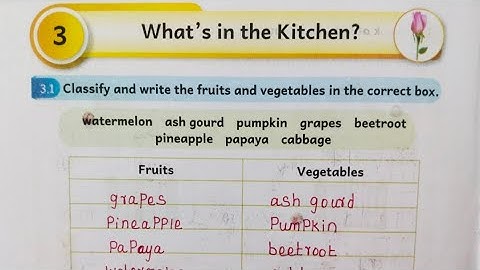 3 What's in the Kitchen?
3.1 Classify and write the fruits and vegetables in the correct box.
watermelon ash gourd pumpkin grapes beetroot
pineapple papaya cabbage
Fruits Vegetables
grapes ash gourd
Pineapple Pumpkin
Papaya beetroot